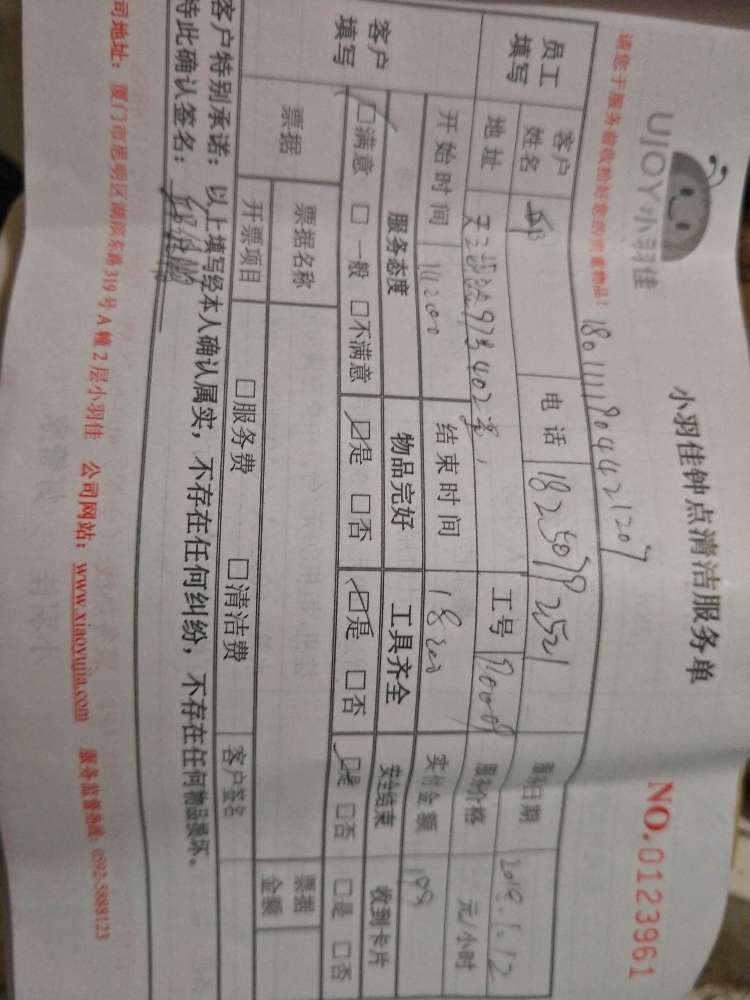 UJOY小羽佳
小羽佳钟点清洁服务单
NO.0123961
请您于服务前收拾好您的贵重物品!
1801111904421207
员工填写
客户姓名
电话 18250792521
服务日期 2019.1.12
地址 973 402室
工号
服务价格 元/小时
开始时间
结束时间 18:00
实付金额 199
客户填写
服务态度 物品完好 工具齐全 安全结束 收到卡片
☑满意 □一般 □不满意 ☑是 □否 ☑是 □否 ☑是 □否 □是 □否
票据
票据名称
票据金额
开票项目 □服务费 □清洁费 客户签名
客户特别承诺:以上填写经本人确认属实,不存在任何纠纷,不存在任何物品损坏。
特此确认签名:
司地址:厦门市思明区湖滨东路319号A幢2层小羽佳 公司网站:www.xiaoyujia.com 服务监督热线:0592-5888123